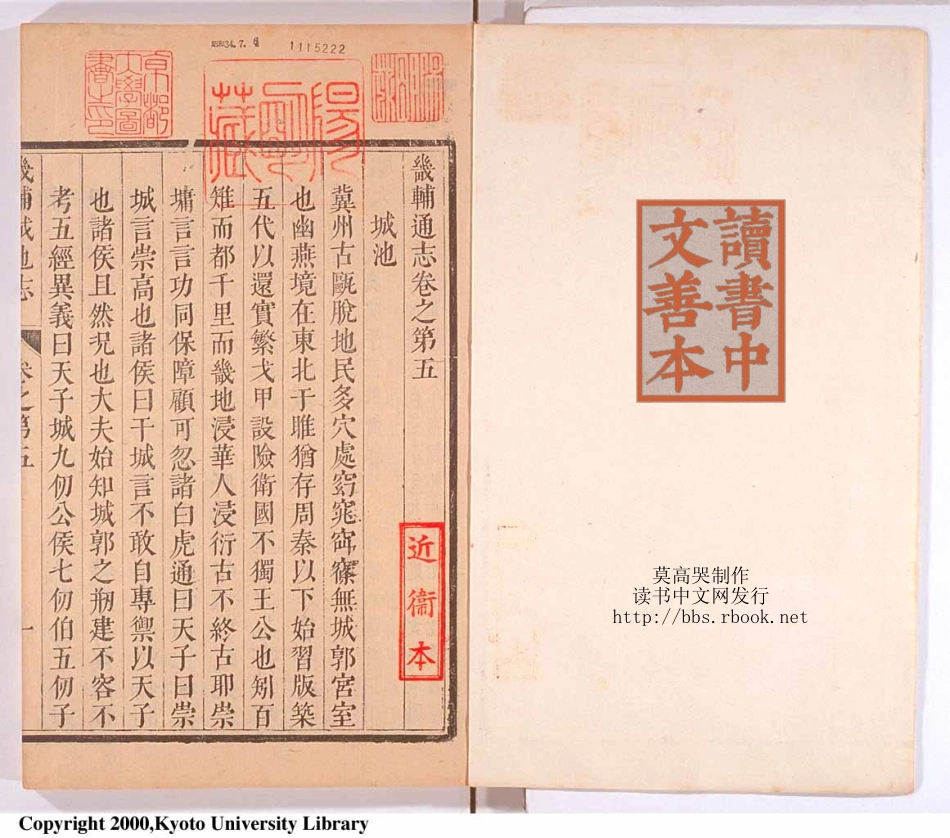 畿輔通志卷之第五
城池
冀州古甌脫地民多穴處窈窕窋窱無城郭宮室
也幽燕境在東北于雎猶存周秦以下始習版築
五代以還實繁戈甲設險衛國不獨王公也矧百
雉而都千里而畿地浸華人浸衍古不終古耶崇
墉言言功同保障顧可忽諸白虎通曰天子曰崇
城言崇高也諸侯曰干城言不敢自專禦以天子
也諸侯且然況也大夫始知城郭之剏建不容不
考五經異義曰天子城九仞公侯七仞伯五仞子
畿輔城池志
卷之第五
一
近衞本
京都
大學圖
書之印
陽明藏
1115222
讀書中
文善本
莫高哭制作
读书中文网发行
http://bbs.rbook.net
Copyright 2000,Kyoto University Library